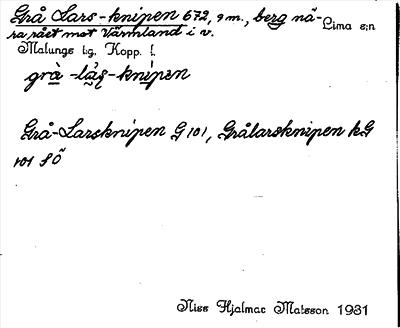 Grå Lars-knipen 672, 9 m., berg nä-
Lima s:n
ra rået mot Värmland i v.
Malungs t:g. Kopp. l.
grà-làs-knipen
Grå-Larsknipen G 101, Grålarsknipen kG
101 SÖ
Niss Hjalmar Matsson 1931